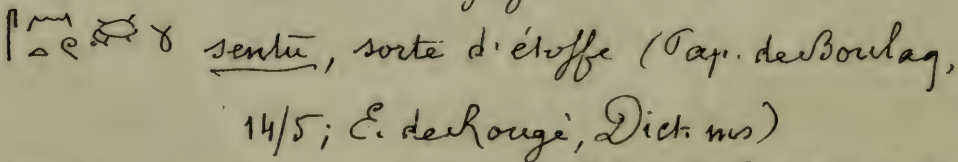 sentü, sorte d'étoffe (Pap. de Boulaq,
14/5; E. de Rougé, Dict. ms)